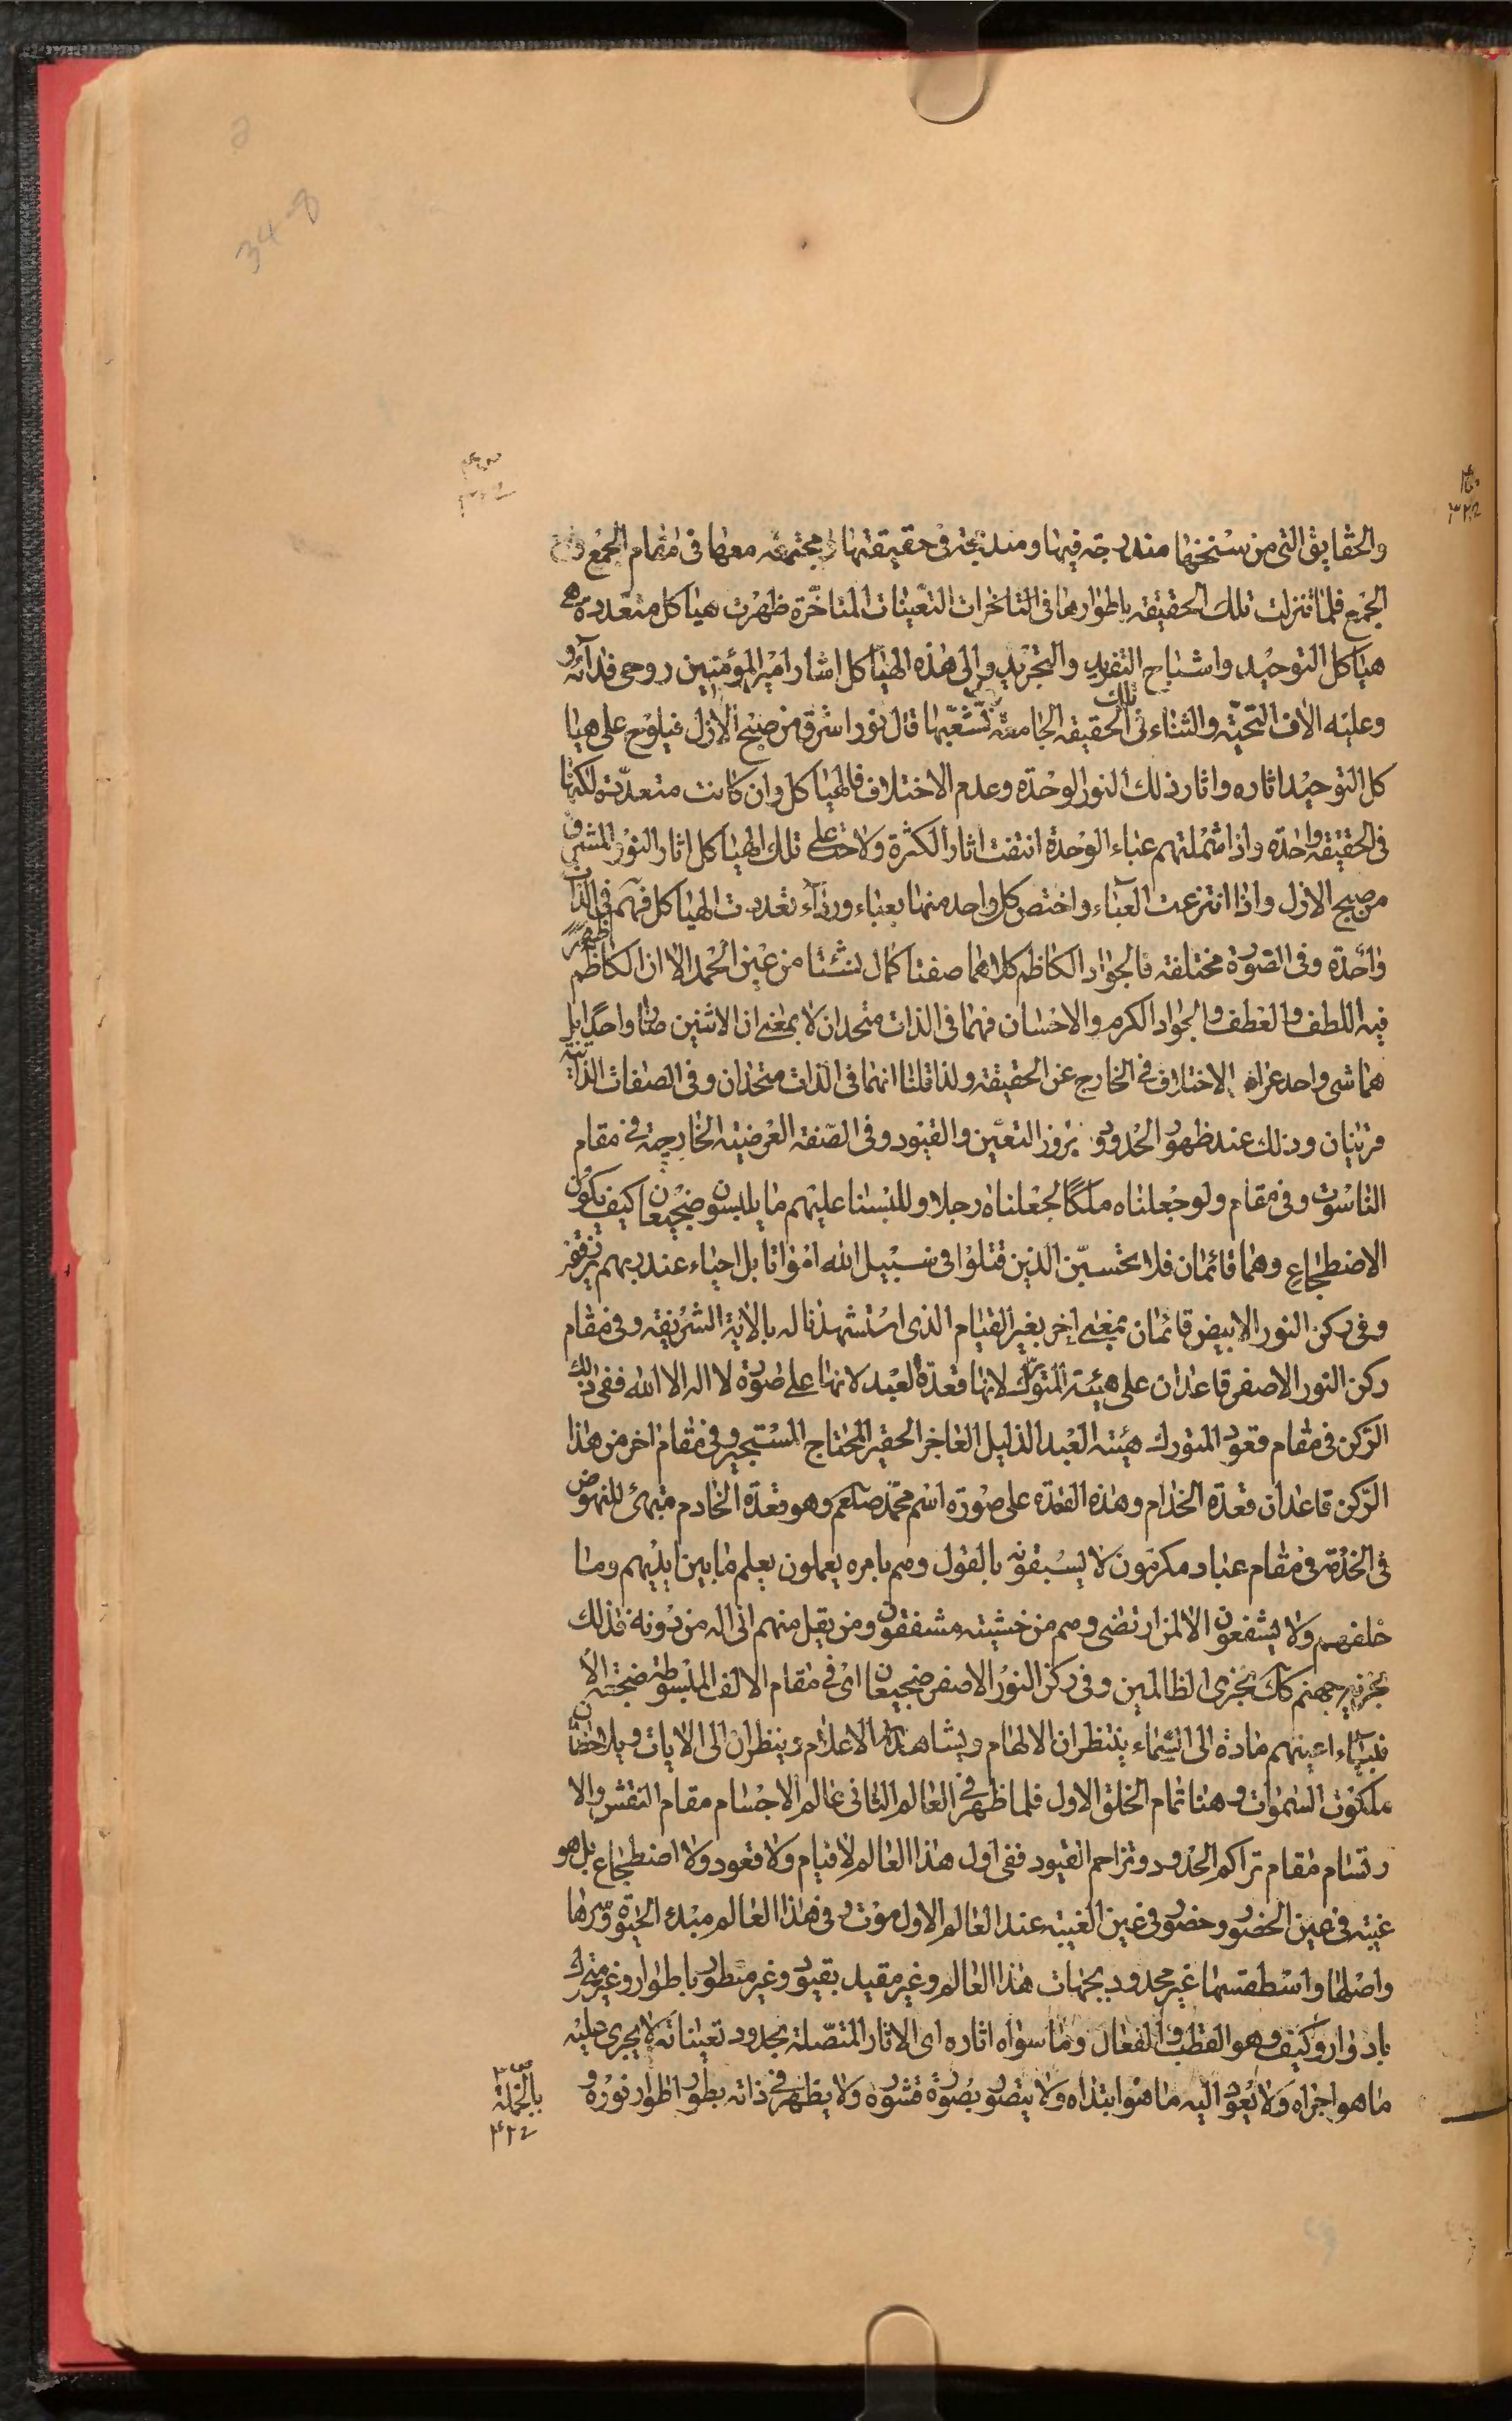 والحقايق التى من سنخها مندرجة فيها ومندمجة فى حقيقتها و مجتمعه معها فى مقام الجمع
الجمع فلما تنزلت تلك الحقيقه باطوارها فى التاخرات التعينات المتاخّرة ظهرت هياكل متعددة هى
هياكل التوحيد واشباح التفريد والتجريد والى هذه الهياكل اشار امير المؤمنين روحى فدائه و
وعليه الاف التحيّة والثناء فى تلك الحقيقه الجامعة تشعّبها قال نور اشرق من صبح الازل فيلوح على هيا
كل التوحيد اثاره واثار ذلك النور الوحدة وعدم الاختلاف فالهياكل وان كانت متعدّدة لكنها
فى الحقيقة واحدة واذا شملتهم عباء الوحدة انتفت اثار الكثرة ولاحت على تلك الهياكل اثار النور المشرق
من صبح الازل واذا انتزعت العباء واختص كل واحد منها بعباء ورداء تعددت الهياكل فهم فى الذات
واحدة وفى الصورة مختلفه فالجواد الكاظم كلاهما صفتا كمال نشئتا من عين الحمد الا ان الكاظم ظهر
فيه اللطف والعطف والجواد الكرم والاحسان فهما فى الذات متحدان لا بمعنى ان الاثنين صارا واحدا بل
هما شى واحد عراه الاختلاف فى الخارج عن الحقيقة ولذا قلنا انهما فى الذات متحدان وفى الصفات الذاتية
قرنيان وذلك عند ظهور الحدود و بروز التعيّن والقيود وفى الصّفة العرضية الخارجية فى مقام
الناسوت وفى مقام ولو جعلناه ملكًا لجعلناه رجلا وللبسنا عليهم ما يلبسون ضجيعان كيف يكون
الاضطجاع وهما قائمان فلا تحسبّن الذين قتلوا فى سبيل الله امواتا بل احياء عند ربهم يرزقون
وفى ركن النور الابيض قائمان بمعنى اخر بغير القيام الذى استشهدنا له بالاية الشريفه وفى مقام
ركن النور الاصفر قاعدان على هيئة المتورّك لانها قعدة العبد لانها على صورة لا اله الا الله ففى ذلك
الرّكن فى مقام قعود المتورك هيئته العبد الذليل العاجز الحقير المحتاج المستجير وفى مقام اخر من هذا
الرّكن قاعدان قعدة الخدام وهذه القعدة على صورة اسم محمّد صلعم وهو قعدة الخادم متهىء للنهوض
فى الخدمة فى مقام عباد مكرمون لا يسبقونه بالقول وهم بامره يعملون يعلم ما بين ايديهم وما
خلفهم ولا يشفعون الا لمن ارتضى وهم من خشيته مشفقون ومن يقل منهم انى اله من دونه فذلك
نجزيه جهنم كذلك نجزى الظالمين وفى ركن النور الاصفر ضجيعان اى فى مقام الالف المبسوطة ضجعة الا
نبياء اعينهم مادة الى السّماء ينتظران الالهام ويشاهدان الاعلام وينظران الى الايات ويلاحظان
ملكوت السموات وهنا تمام الخلق الاول فلما ظهر فى العالم الثانى عالم الاجسام مقام النقش والا
رتسام مقام تراكم الحدود وتزاحم القيود ففى اول هذا العالم لا قيام ولا قعود ولا اضطجاع بل هو
غيبة فى عين الحضور وحضور فى عين الغيبة عند العالم الاول موت وفى هذا العالم مبدء الحيوة وسرها
واصلها واسطقسها غير محدود بجهات هذا العالم وغير مقيد بقيود وغير متطور باطوار وغير متحرك
بادوار وكيف وهو القطب والفعال وما سواه اثاره اى الاثار المتصّلة بحدود تعيناته لا يجرى عليه
ما هو اجراه ولا يعود اليه ما هو ابتداه ولا يتصور بصورة قشوه ولا يظهر فى ذاته بطور اطوار نوره و
بالجملة